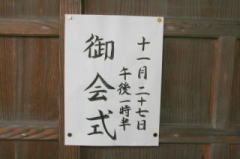 十一月二十七日
午後一時半
御会式